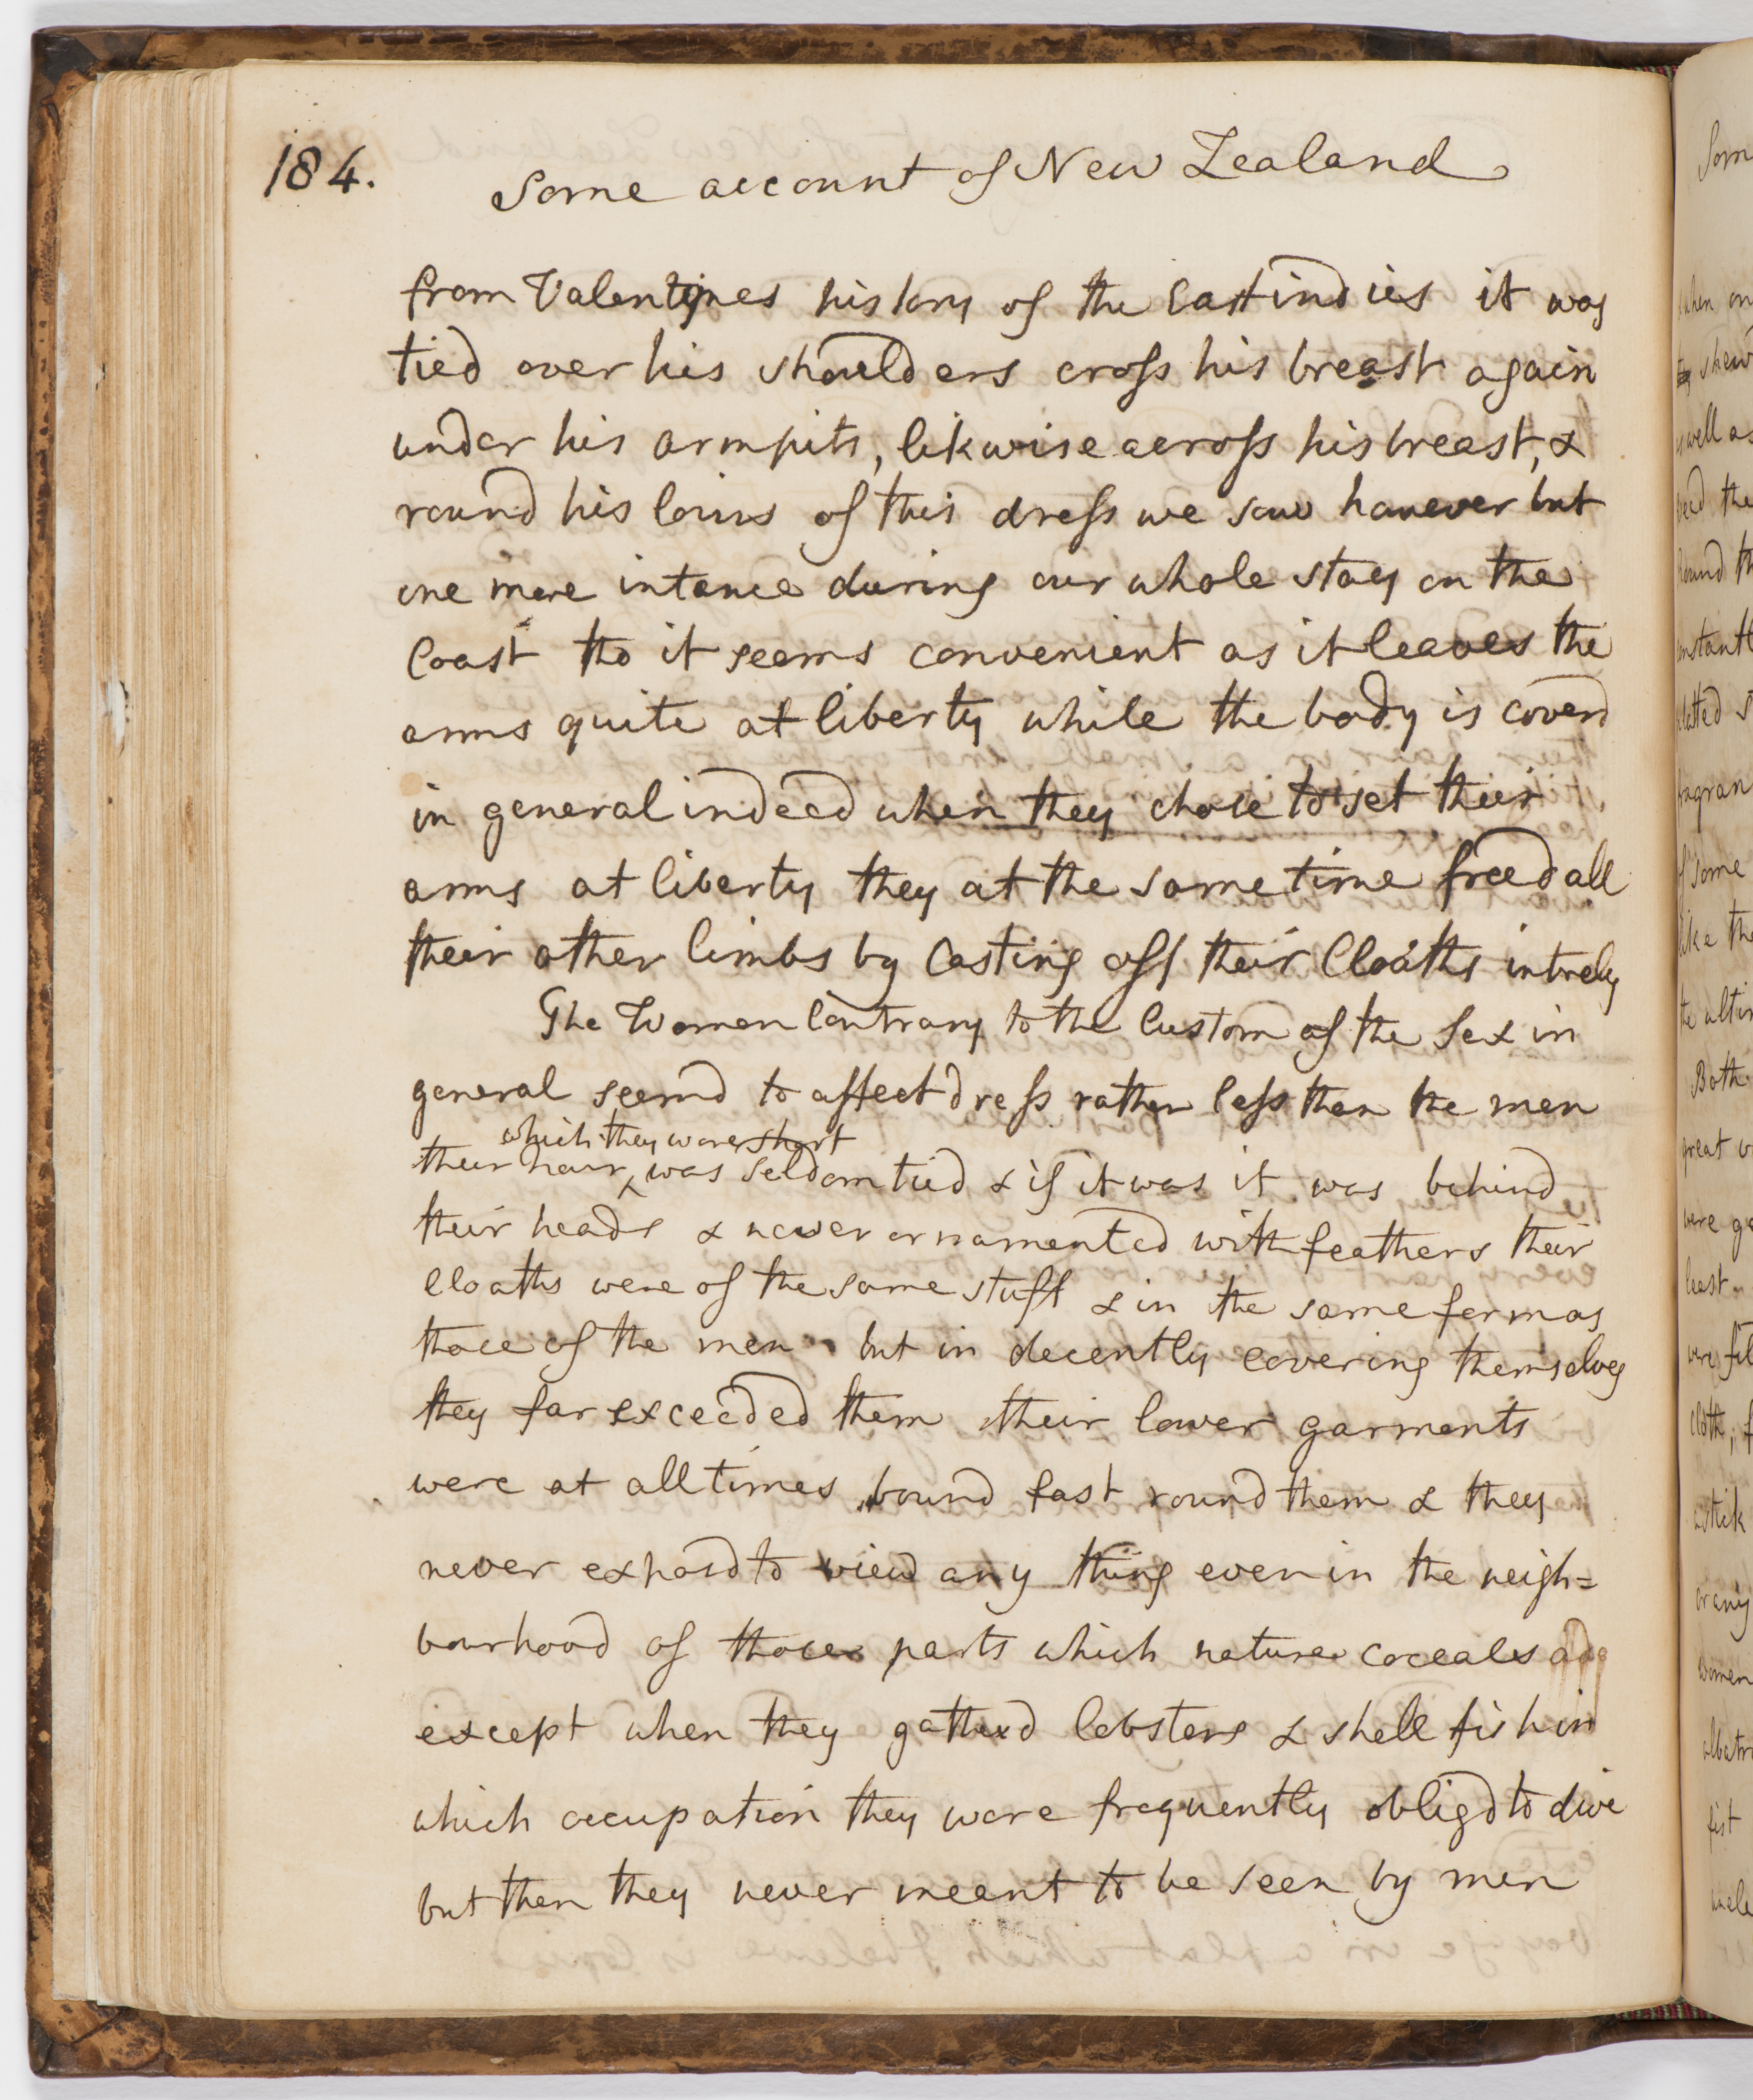 184.
Some account of New Zealand
from Valentynes history of the Eastindies it was
tied over his shoulders cross his breast again
under his armpits, likwise across his breast, &
round his loins of this dress we saw however but
one more intance during our whole stay on the
Coast tho it seems convenient as it leaves the
arms quite at liberty while the body is coverd
in general indeed when they chose to set their
arms at liberty they at the same time freed all
their other limbs by Casting off their Cloaths intirely
The Women Contrary to the Custom of the Sex in
general seemd to affect dress rather less then the men
which they wore short
their hair was seldom tied & if it was it was behind
their heads & never ornamented with feathers their
Cloaths were of the same stuff & in the same form as
those of the men but in decently covering themselves
they far exceeded them their lower garments
were at all times bound fast round them & they
never exposd to view any thing even in the neigh=
bourhood of those parts which nature coceals
except when they gatherd lobsters & shell fish in
which occupation they were frequently obligd to dive
but then they never meant to be seen by men
Som
when on
shew
well as
the
round th
platted s
fragran
of some
like the
Both
great
were
least
were
Cloth,
or any
women
albatr
fist